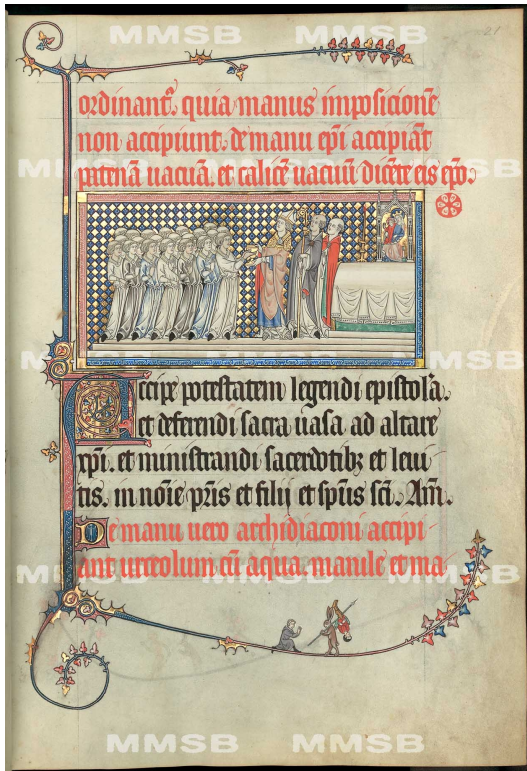 MMSB MMSB
21
ordinantᷣ. quia manus imposicionē
non accipiunt. de manu ep̄i accipiāt
MMSB MMSB MMSB
patenā uacuā. et calicē uacuū dicēte eis ep̄o.
MMSB MMSB MMSB
Accipe potestatem legendi epistolā.
et deferendi sacra uasa ad altare
xp̄i. et ministrandi sacerdotibꝫ et leui
tis. in noīe pr̄is et filij et sp̄us sc̄i. Am̄.
De manu uero archidiaconi accipi
ant urceolum cū aqua. manile et ma
MMSB MMSB MMSB
MMSB MMSB